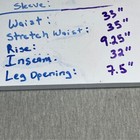 Sleeve:
Waist: 33"
Stretch Waist: 35"
Rise: 9.25"
Inseam: 32"
Leg Opening: 7.5"